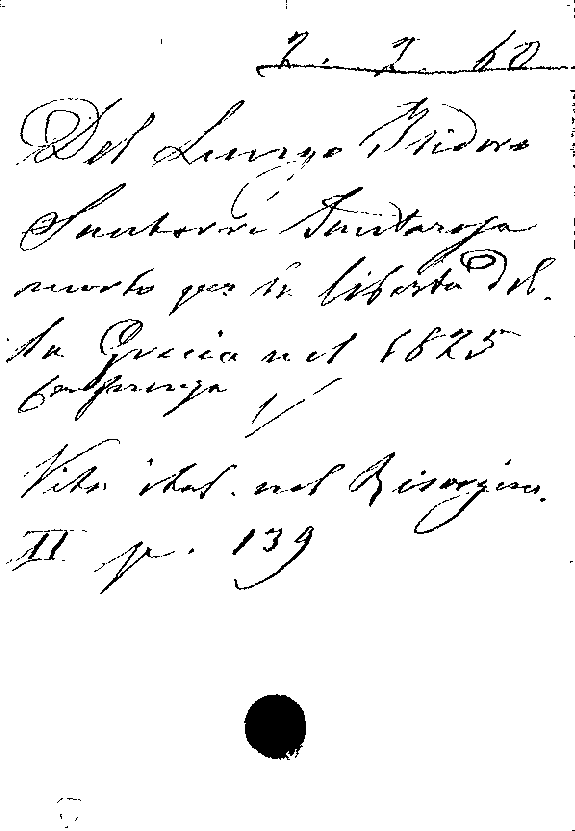 2. 2. 60
Del Lungo Isidoro
Santorre Santarosa
morto per la libertà del-
la Grecia nel 1825
Conferenza
Vita ital. nel Risorgim.
II p. 139